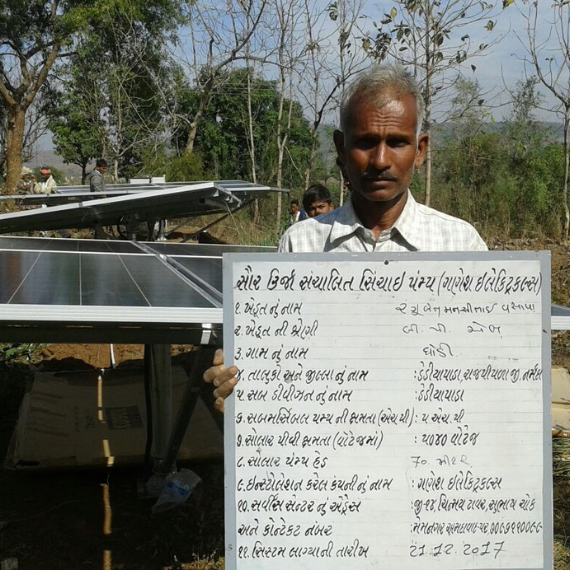 સૌર ઊર્જા સંચાલિત સિંચાઇ પંમ્પ (ગણેશ ઇલેક્ટ્રિકલ્સ)
૧. ખેડૂત નું નામ
૨. ખેડૂત ની શ્રેણી બી. પી. એલ
૩. ગામ નું નામ
૪. તાલુકો અને જીલ્લા નું નામ : ડેડીયાપાડા, રાજપીપળા જી. નર્મદા
૫ સબ ડીવીઝન નું નામ : ડેડીયાપાડા
૬. સબમર્સિબલ પમ્પ ની ક્ષમતા (એચ પી) : ૫ એચ. પી
૭. સોલાર પીવી ક્ષમતા (વોટેજમાં) : ૫૦૪૦ વોટેજ
૮. સોલાર પંમ્પ હેડ 70. મીટર
૯. ઇન્સ્ટોલેશન કરેલ કંપની નું નામ : ગણેશ ઇલેક્ટ્રિકલ્સ
૧૦. સર્વીસ સેન્ટર નું એડ્રેસ ચિન્મય ટાવર, સુભાષ ચોક
અને કોન્ટેક્ટ નંબર
૧૧. સિસ્ટમ લાગ્યાની તારીખ 21.12.2017